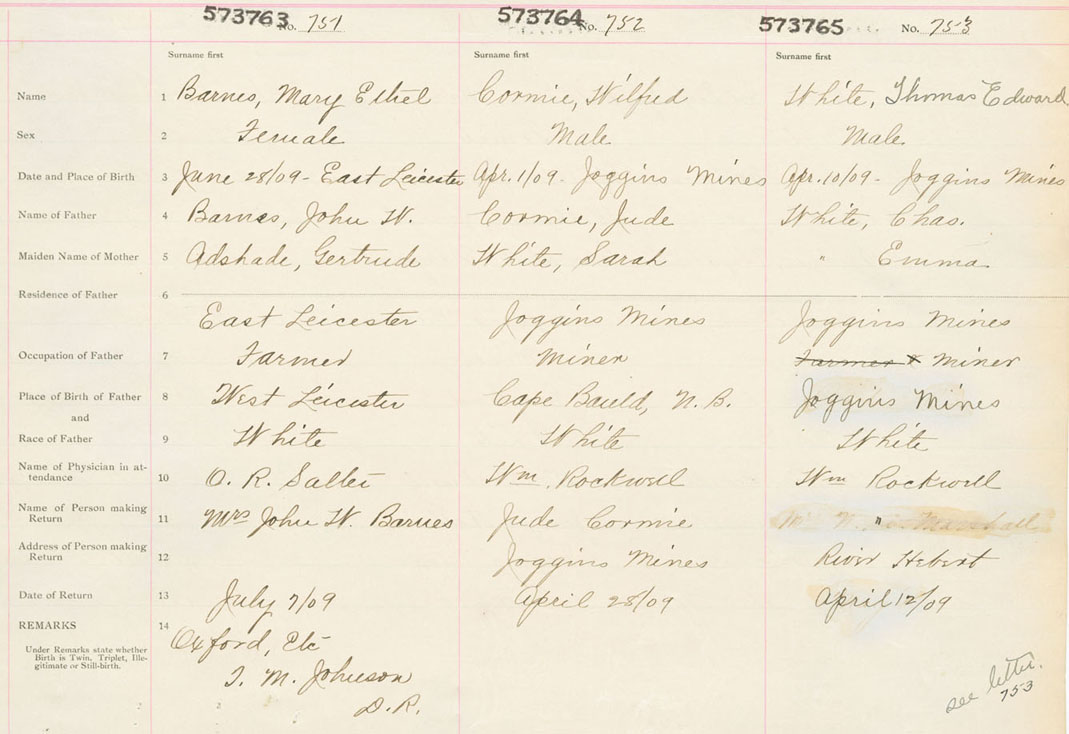 573763 No. 751 573764 No. 752 573765 No. 753
Surname first Surname first Surname first
Name 1 Barnes, Mary Ethel Cormie, Wilfred White, Thomas Edward
Sex 2 Female Male Male
Date and Place of Birth 3 June 28/09 - East Leicester Apr. 1/09 - Joggins Mines Apr. 10/09 - Joggins Mines
Name of Father 4 Barnes, John W. Cormie, Jude White, Chas.
Maiden Name of Mother 5 Adshade, Gertrude White, Sarah " Emma
Residence of Father 6
East Leicester Joggins Mines Joggins Mines
Occupation of Father 7 Farmer Miner Farmer Miner
Place of Birth of Father 8 West Leicester Cape Bauld, N.B. Joggins Mines
and
Race of Father 9 White White White
Name of Physician in at-
tendance 10 O. R. Salter Wm. Rockwell Wm Rockwell
Name of Person making
Return 11 Mrs John W. Barnes Jude Cormie " Marshall
Address of Person making
Return 12 Joggins Mines River Hebert
Date of Return 13 July 7/09 April 28/09 April 12/09
REMARKS 14
Under Remarks state whether
Birth is Twin, Triplet, Ille-
gitimate or Still-birth.
Oxford, Etc
T. M. Johnson
D.R.
see letter.
753